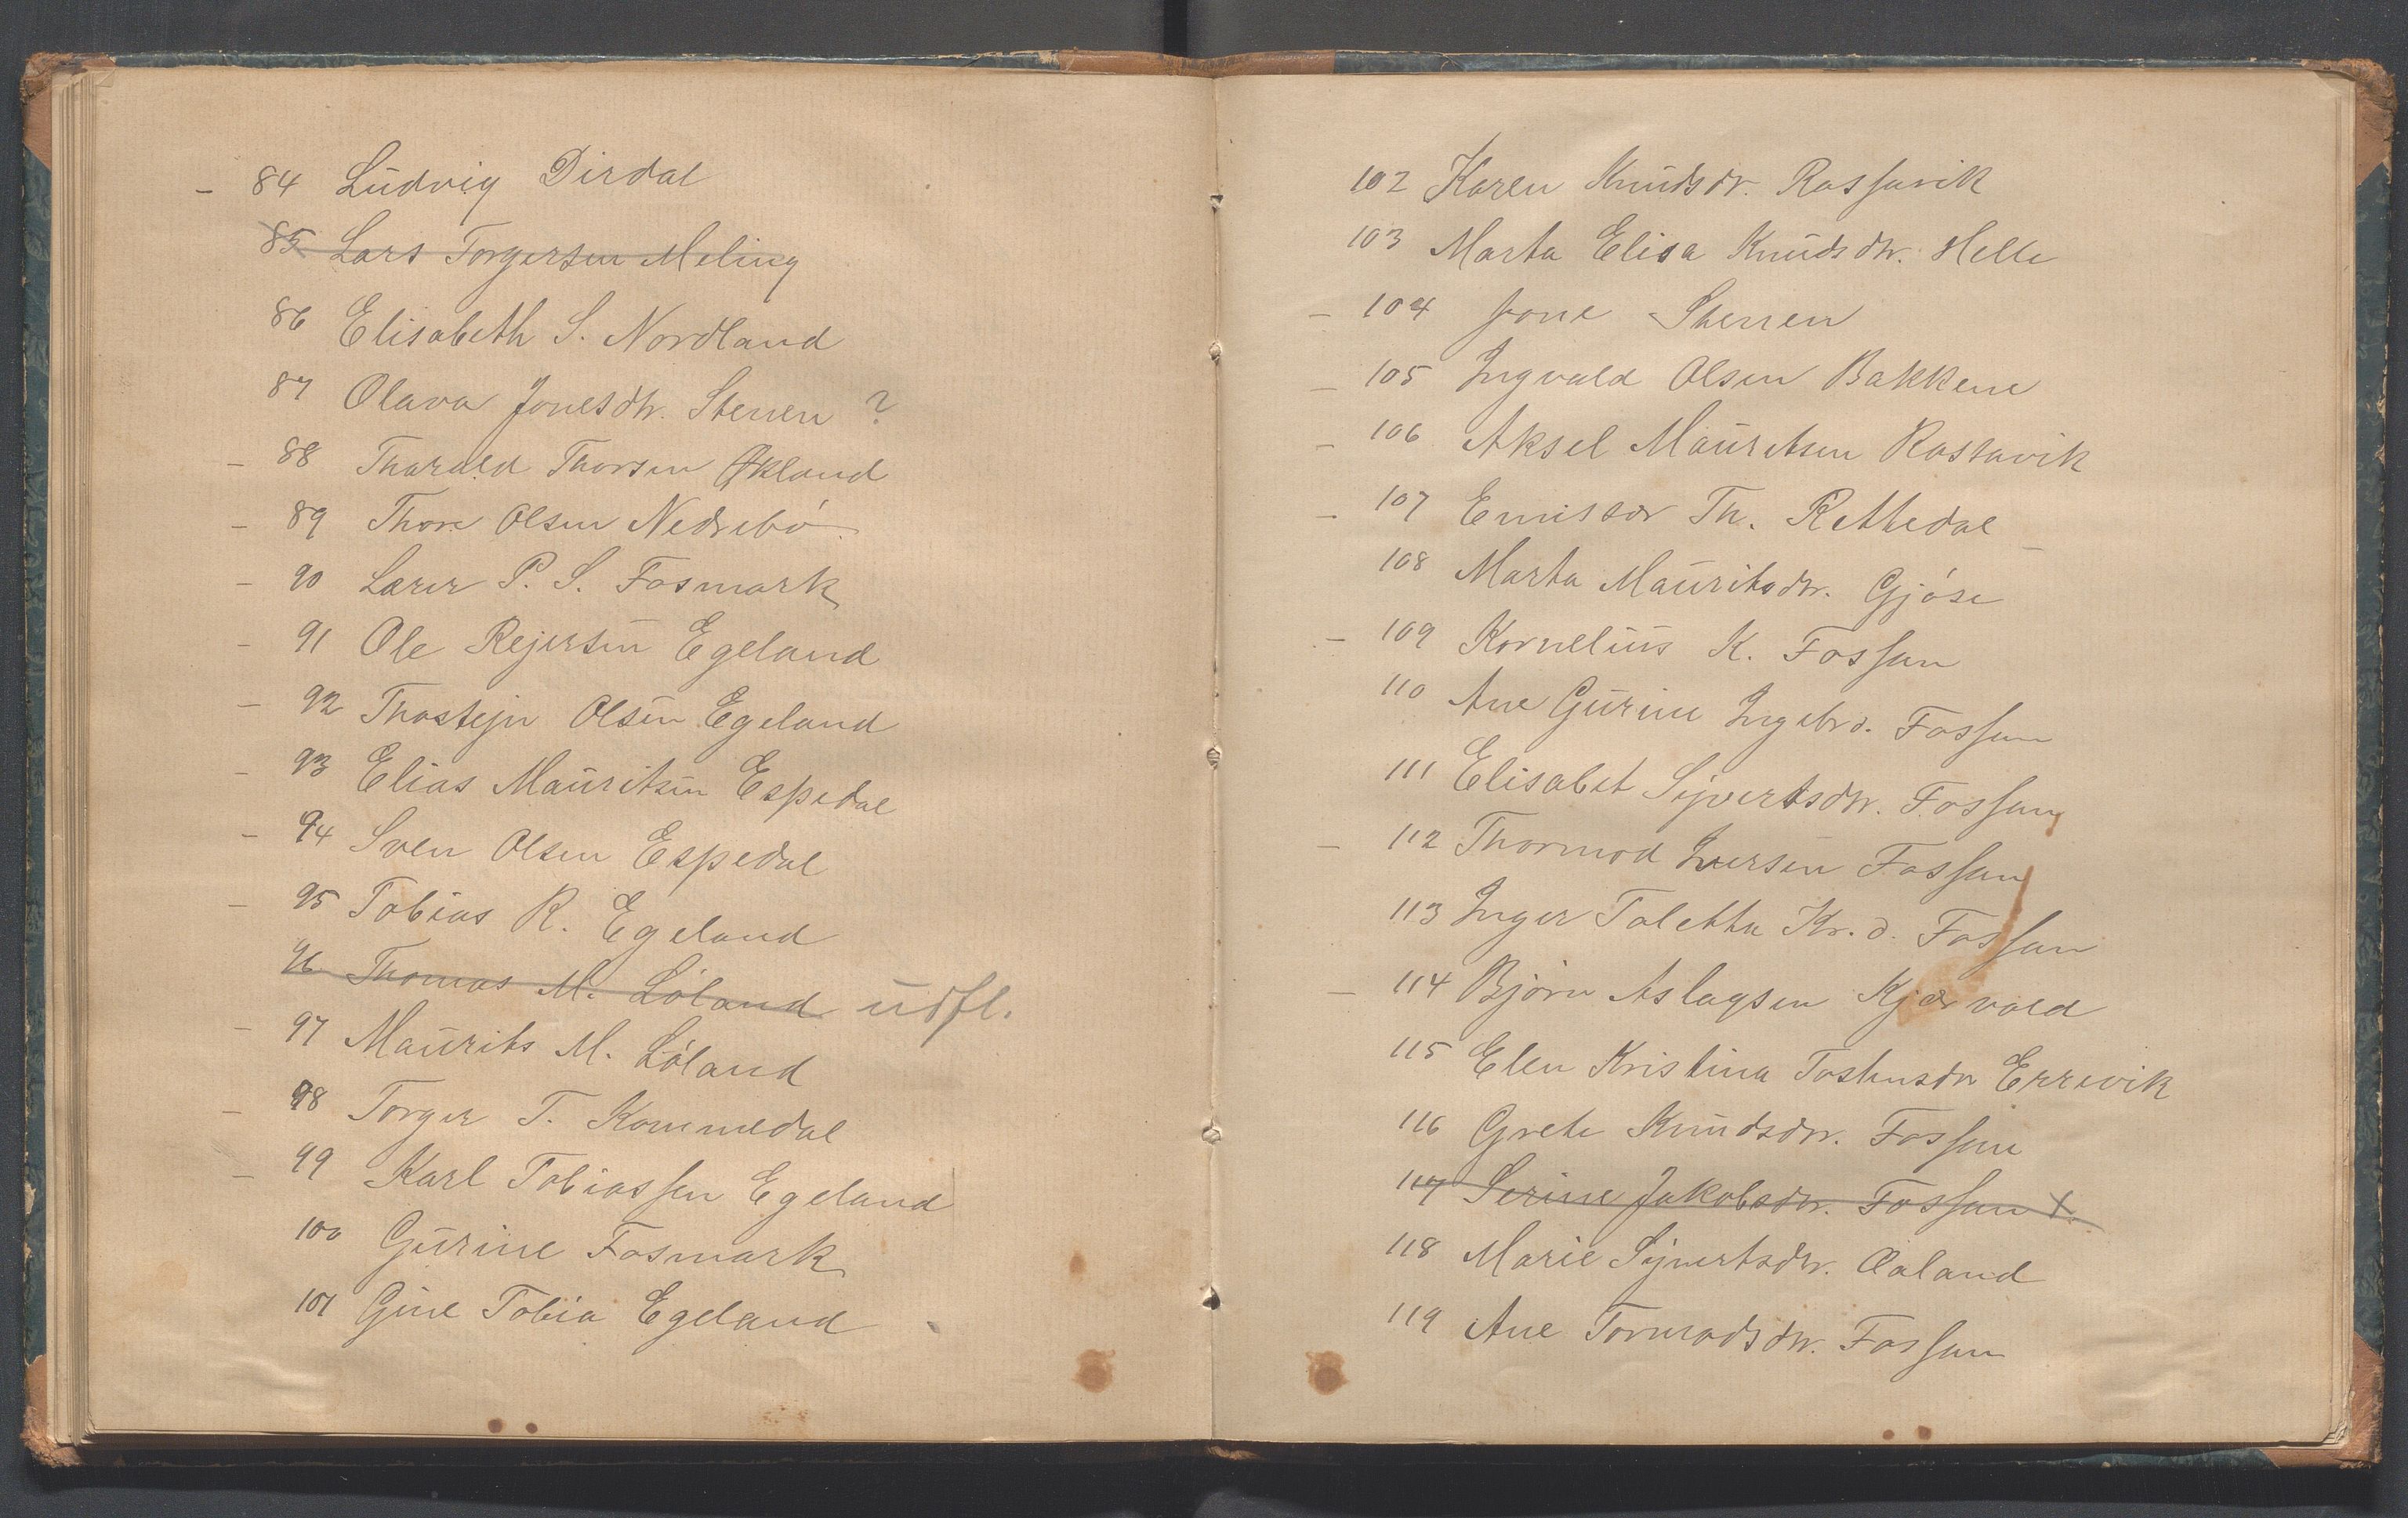 – 84 Ludvig Dirdal
85 Lars Torgersen Meling
86 Elisabeth S. Nordland
87 Olava Jonesdtr. Stenen ?
– 88 Tharald Thorsen Økland
– 89 Thore Olsen Nedrebó
– 90 Lærer P. S. Fosmark
– 91 Ole Rejersen Egeland
– 92 Thostejn Olsen Egeland
– 93 Elias Mauritsen Espedal
– 94 Sven Olsen Espedal
– 95 Tobias R. Egeland
96 Thomas M. Lóland udfl.
– 97 Maurits M. Lóland
– 98 Torger T. Kommedal
– 99 Karl Tobiassen Egeland
100 Gurine Fosmark
101 Gine Tobia Egeland
102 Karen Knudsdr. Rossavik
103 Marta Elisa Knudsdtr. Helle
– 104 Jone Stenen
– 105 Ingvald Olsen Bakkene
– 106 Aksel Mauritsen Rossavik
– 107 Emissær Th. Rettedal
108 Marta Mauritsdtr. Gjóse
– 109 Kornelius K. Fossan
110 Ane Gurine Ingebr.d. Fossan
111 Elisabet Sijvertsdtr. Fossan
– 112 Thormod Iversen Fossan
113 Inger Taletta Kr. d. Fossan
– 114 Bjórn Aslagsen Kjærvold
115 Elen Kristina Tostensdtr Errevik
116 Grete Knudsdtr. Fossan
117 Serine Jakobsdtr. Fossan X.
118 Marie Sijvertsdtr. Øaland
119 Ane Tormodsdtr. Fossan